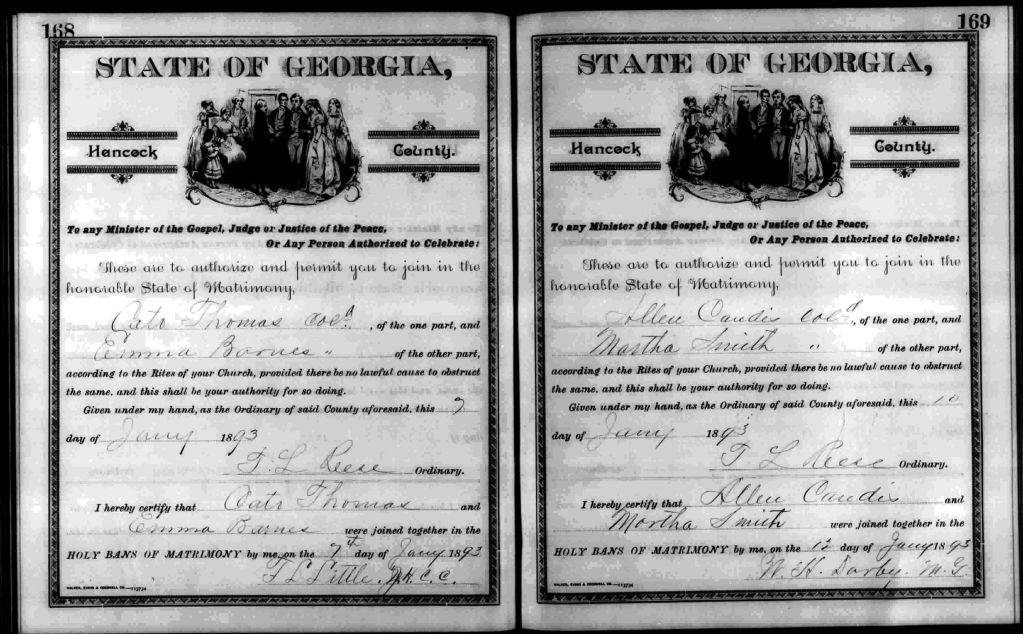 168
STATE OF GEORGIA,
Hancock County.
To any Minister of the Gospel, Judge or Justice of the Peace,
Or Any Person Authorized to Celebrate:
These are to authorize and permit you to join in the
honorable State of Matrimony,
Cato Thomas cold. , of the one part, and
Emma Barnes " of the other part,
according to the Rites of your Church, provided there be no lawful cause to obstruct
the same, and this shall be your authority for so doing.
Given under my hand, as the Ordinary of said County aforesaid, this 7
day of Jany 1893
T. L Reese Ordinary.
I hereby certify that Cato Thomas and
Emma Barnes were joined together in the
HOLY BANS OF MATRIMONY by me, on the 7th day of Jany 1893
T L Little, C. C.
169
STATE OF GEORGIA,
Hancock County.
To any Minister of the Gospel, Judge or Justice of the Peace,
Or Any Person Authorized to Celebrate:
These are to authorize and permit you to join in the
honorable State of Matrimony,
Allen Candis cold , of the one part, and
Martha Smith " of the other part,
according to the Rites of your Church, provided there be no lawful cause to obstruct
the same, and this shall be your authority for so doing.
Given under my hand, as the Ordinary of said County aforesaid, this 10
day of Jany 1893
T L Reese Ordinary.
I hereby certify that Allen Candis and
Martha Smith were joined together in the
HOLY BANS OF MATRIMONY by me, on the 12 day of Jany 1893
W. H. Darby. M. G.